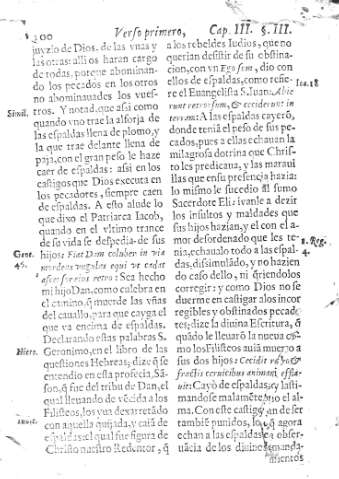 200 Verso primero, Cap. III. §. III.
juyzio de Dios. de las vnas y
las otras: alli os haran cargo
de todas, porque abominan-
do los pecados en los otros
no abominauades los vues-
tros. Y notad, que asi como
Simil.
quando vno trae la alforja de
las espaldas llena de plomo, y
la que trae delante llena de
paja, con el gran peso le haze
caer de espaldas: asi en los
castigos que Dios executa en
los pecadores, siempre caen
de espaldas. A esto alude lo
que dixo el Patriarca Iacob,
quando en el vltimo trance
de su vida se despedia de sus
Gene. 49.
hijos: Fiat Dan coluber in via
mordens vngulas equi vt cadat
ascensor eius retro: Sea hecho
mi hijo Dan, como culebra en
el camino, que muerde las vñas
del cauallo, para que cayga el
que va encima de espaldas.
Declarando estas palabras S.
Hiero.
Geronimo, en el libro de las
questiones Hebreas; dize que se
entendio en esta profecia, Sã-
son, que fue del tribu de Dan, el
qual lleuando de vẽcida a los
Filisteos, los vua desarretado
con aquella quijada, y caiã de
espaldas: el qual fue figura de
Christo nuestro Redentor, que
a los rebeldes Iudios, que no
querian desistir de su obstina-
cion, con vn Ego sum, dio con
ellos de espaldas, como refie-
re el Euangelista S. Iuan: Abie
Ioa. 18
runt retrorsum, & ceciderunt in
terram: A las espaldas cayerõ,
donde teniã el peso de sus pe-
cados, pues a ellas echauan la
milagrosa dotrina que Chris-
to les predicaua, y las maraui
llas que en su presencia hazia:
lo mismo le sucedio al sumo
Sacerdote Eli: vianle a dezir
los insultos y maldades que
sus hijos hazian, y el con el a-
mor desordenado que les te-
1. Reg. 4.
nia, echaualo todo a las espal-
das, disimulado, y no hazien
do caso dello, ni queriendolos
corregir: y como Dios no se
duerme en castigar a los incor
regibles y obstinados pecado
tes; dize la diuina Escritura, que
quãdo le lleuarõ la nueua co-
mo los Filisteos auiã muerto a
sus dos hijos:
Cayò de espaldas, y lasti-
mandose malamẽte, dio el al-
ma. Con este castigo han de ser
tambiẽ punidos, los que agora
echan a las espaldas la obser-
uãcia de los diuinos manda-
mientos